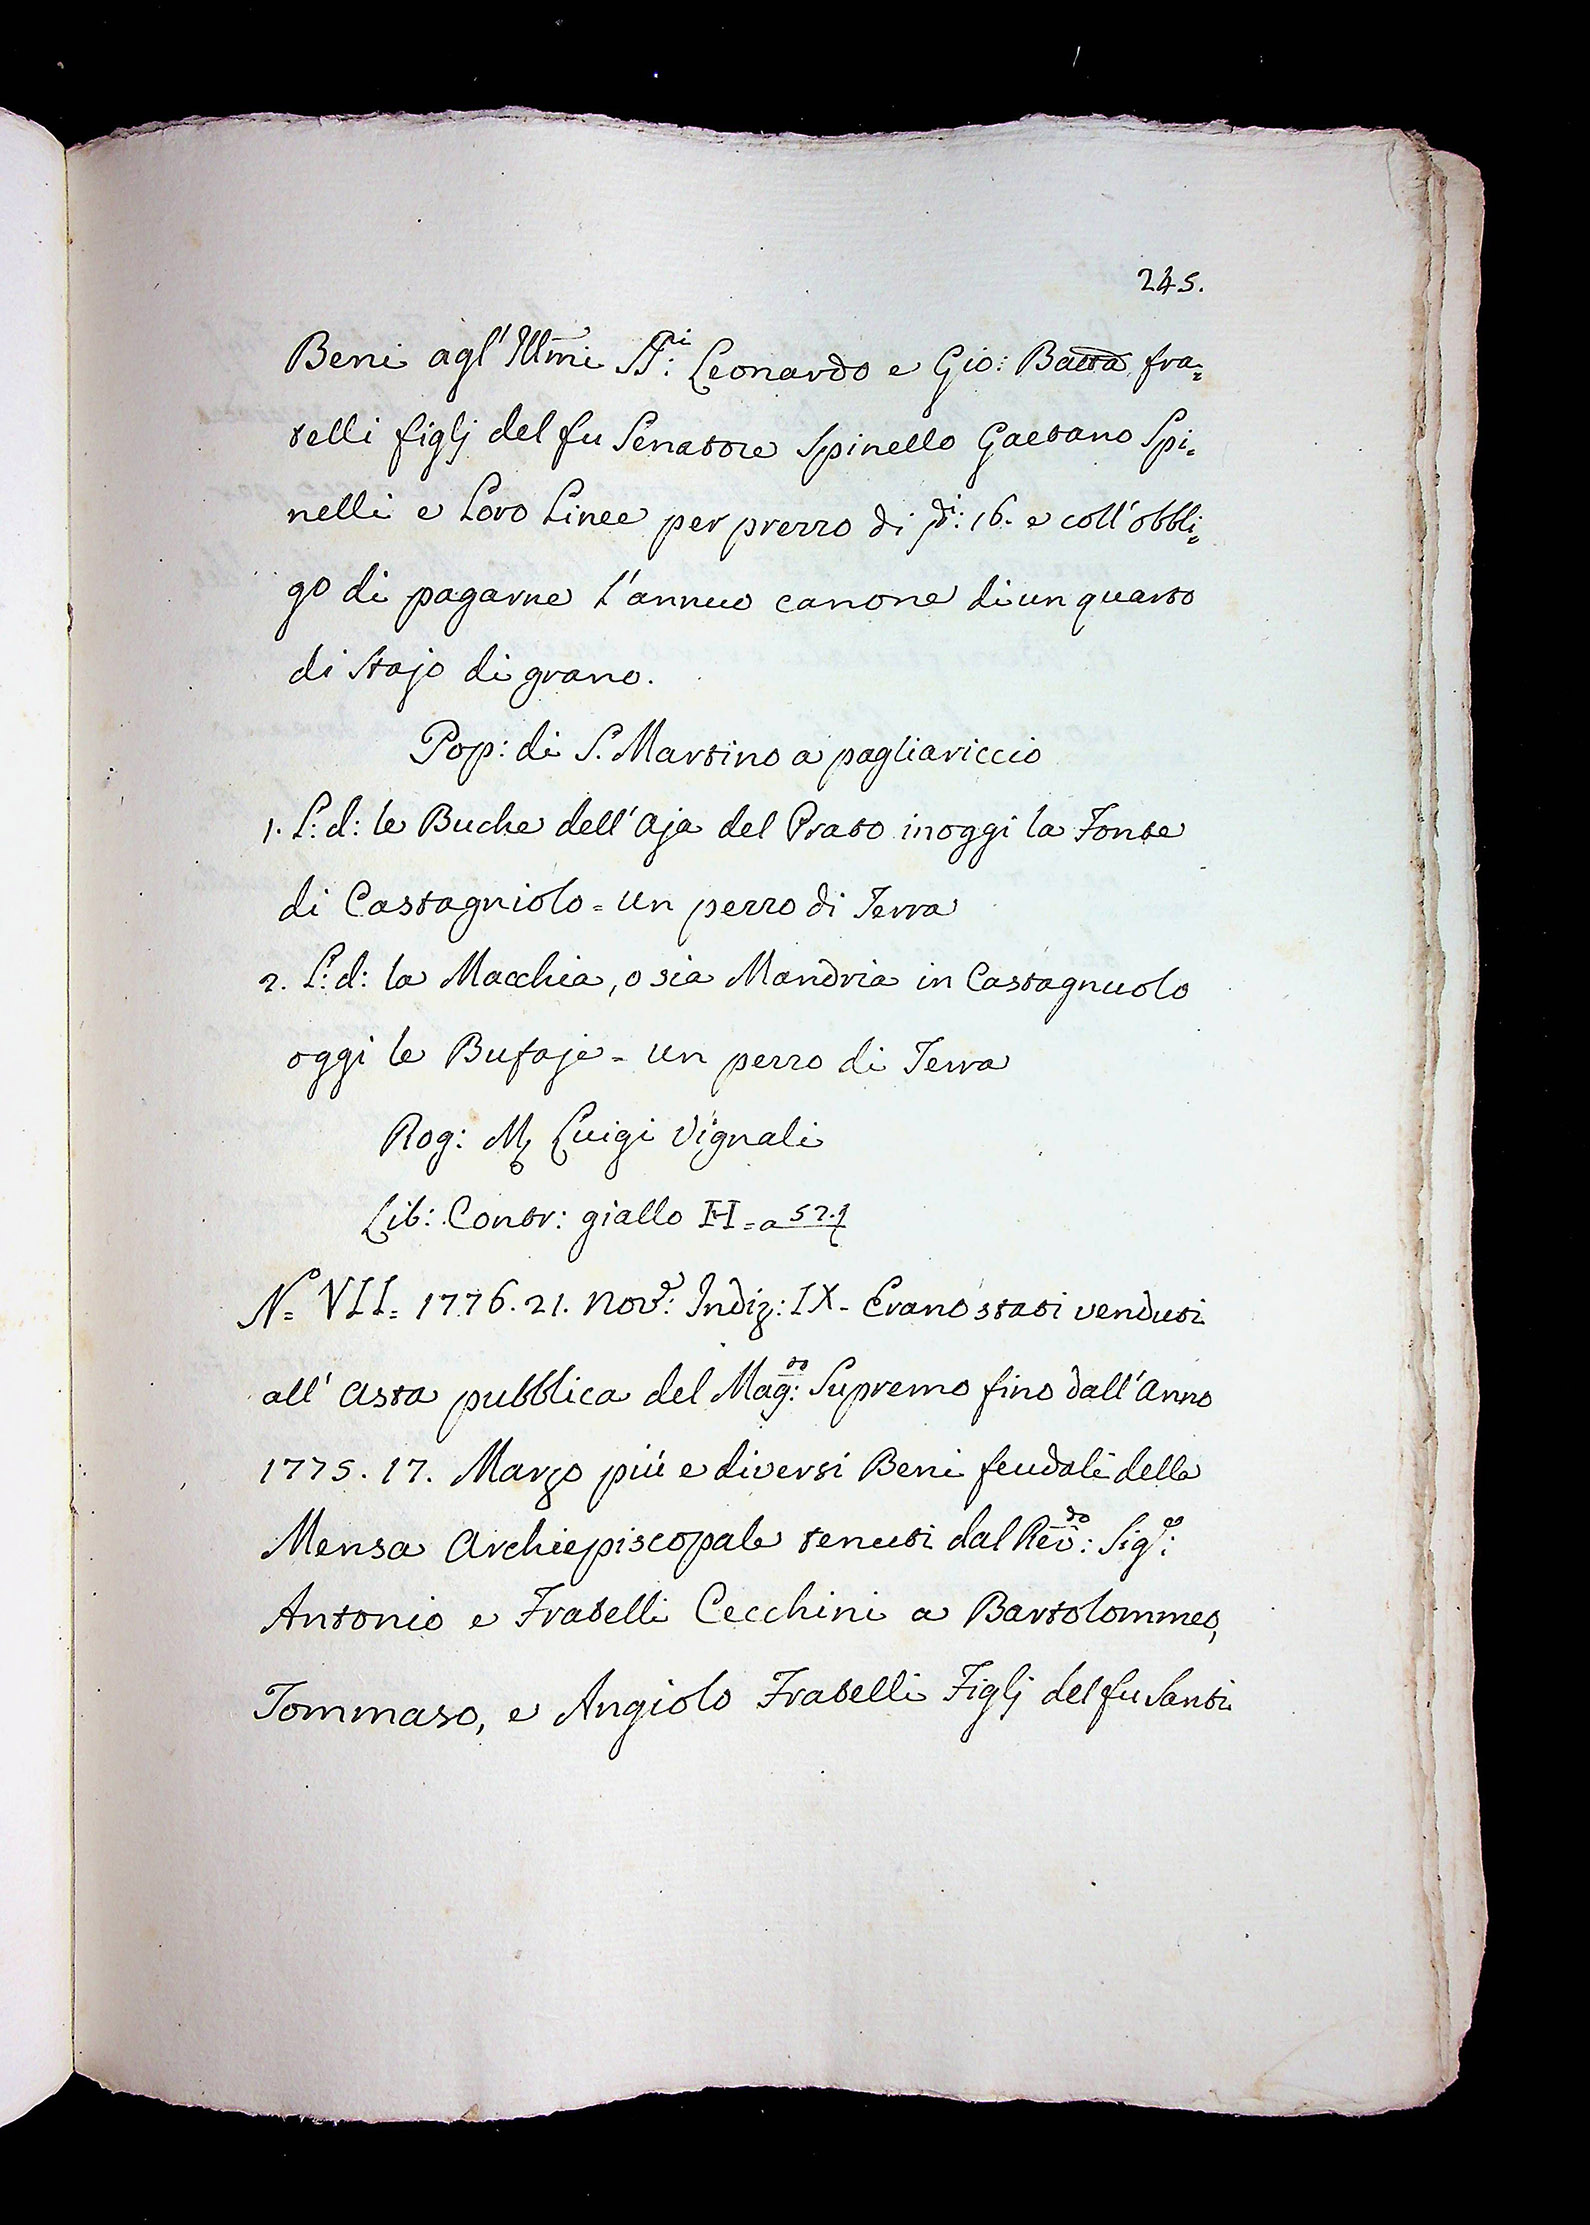 245.
Beni agl' Illmi SS:ri Leonardo e Gio: Batta fra=
telli figlj del fu Senatore Spinello Gaetano Spi=
nelli e Loro Linee per prezzo di di: 16. e coll'obbli=
go di pagarne l'annuo canone di un quarto
di Stajo di grano.
Pop: di S. Martino a pagliariccio
1. L: d: le Buche dell'Aja del Prato inoggi la Fonte
di Castagniolo = un pezzo di Terra
2. L: d: la Macchia, o sia Mandria in Castagnuolo
oggi le Bufaje = un pezzo di Terra
Rog: M Luigi Vignali
Lib: Contr: giallo H = a
No= VII= 1776. 21. Nov:e Indiz: IX - Erano stati venduti
all' Asta pubblica del Mag:to Supremo fino dall'Anno
1775. 17. Marzo più e diversi Beni feudali della
Mensa Archiepiscopale tenuti dal Rev:do Sig:e
Antonio e Fratelli Cecchini a Bartolommeo,
Tommaso, e Angiolo Fratelli Figlj del fu Santi